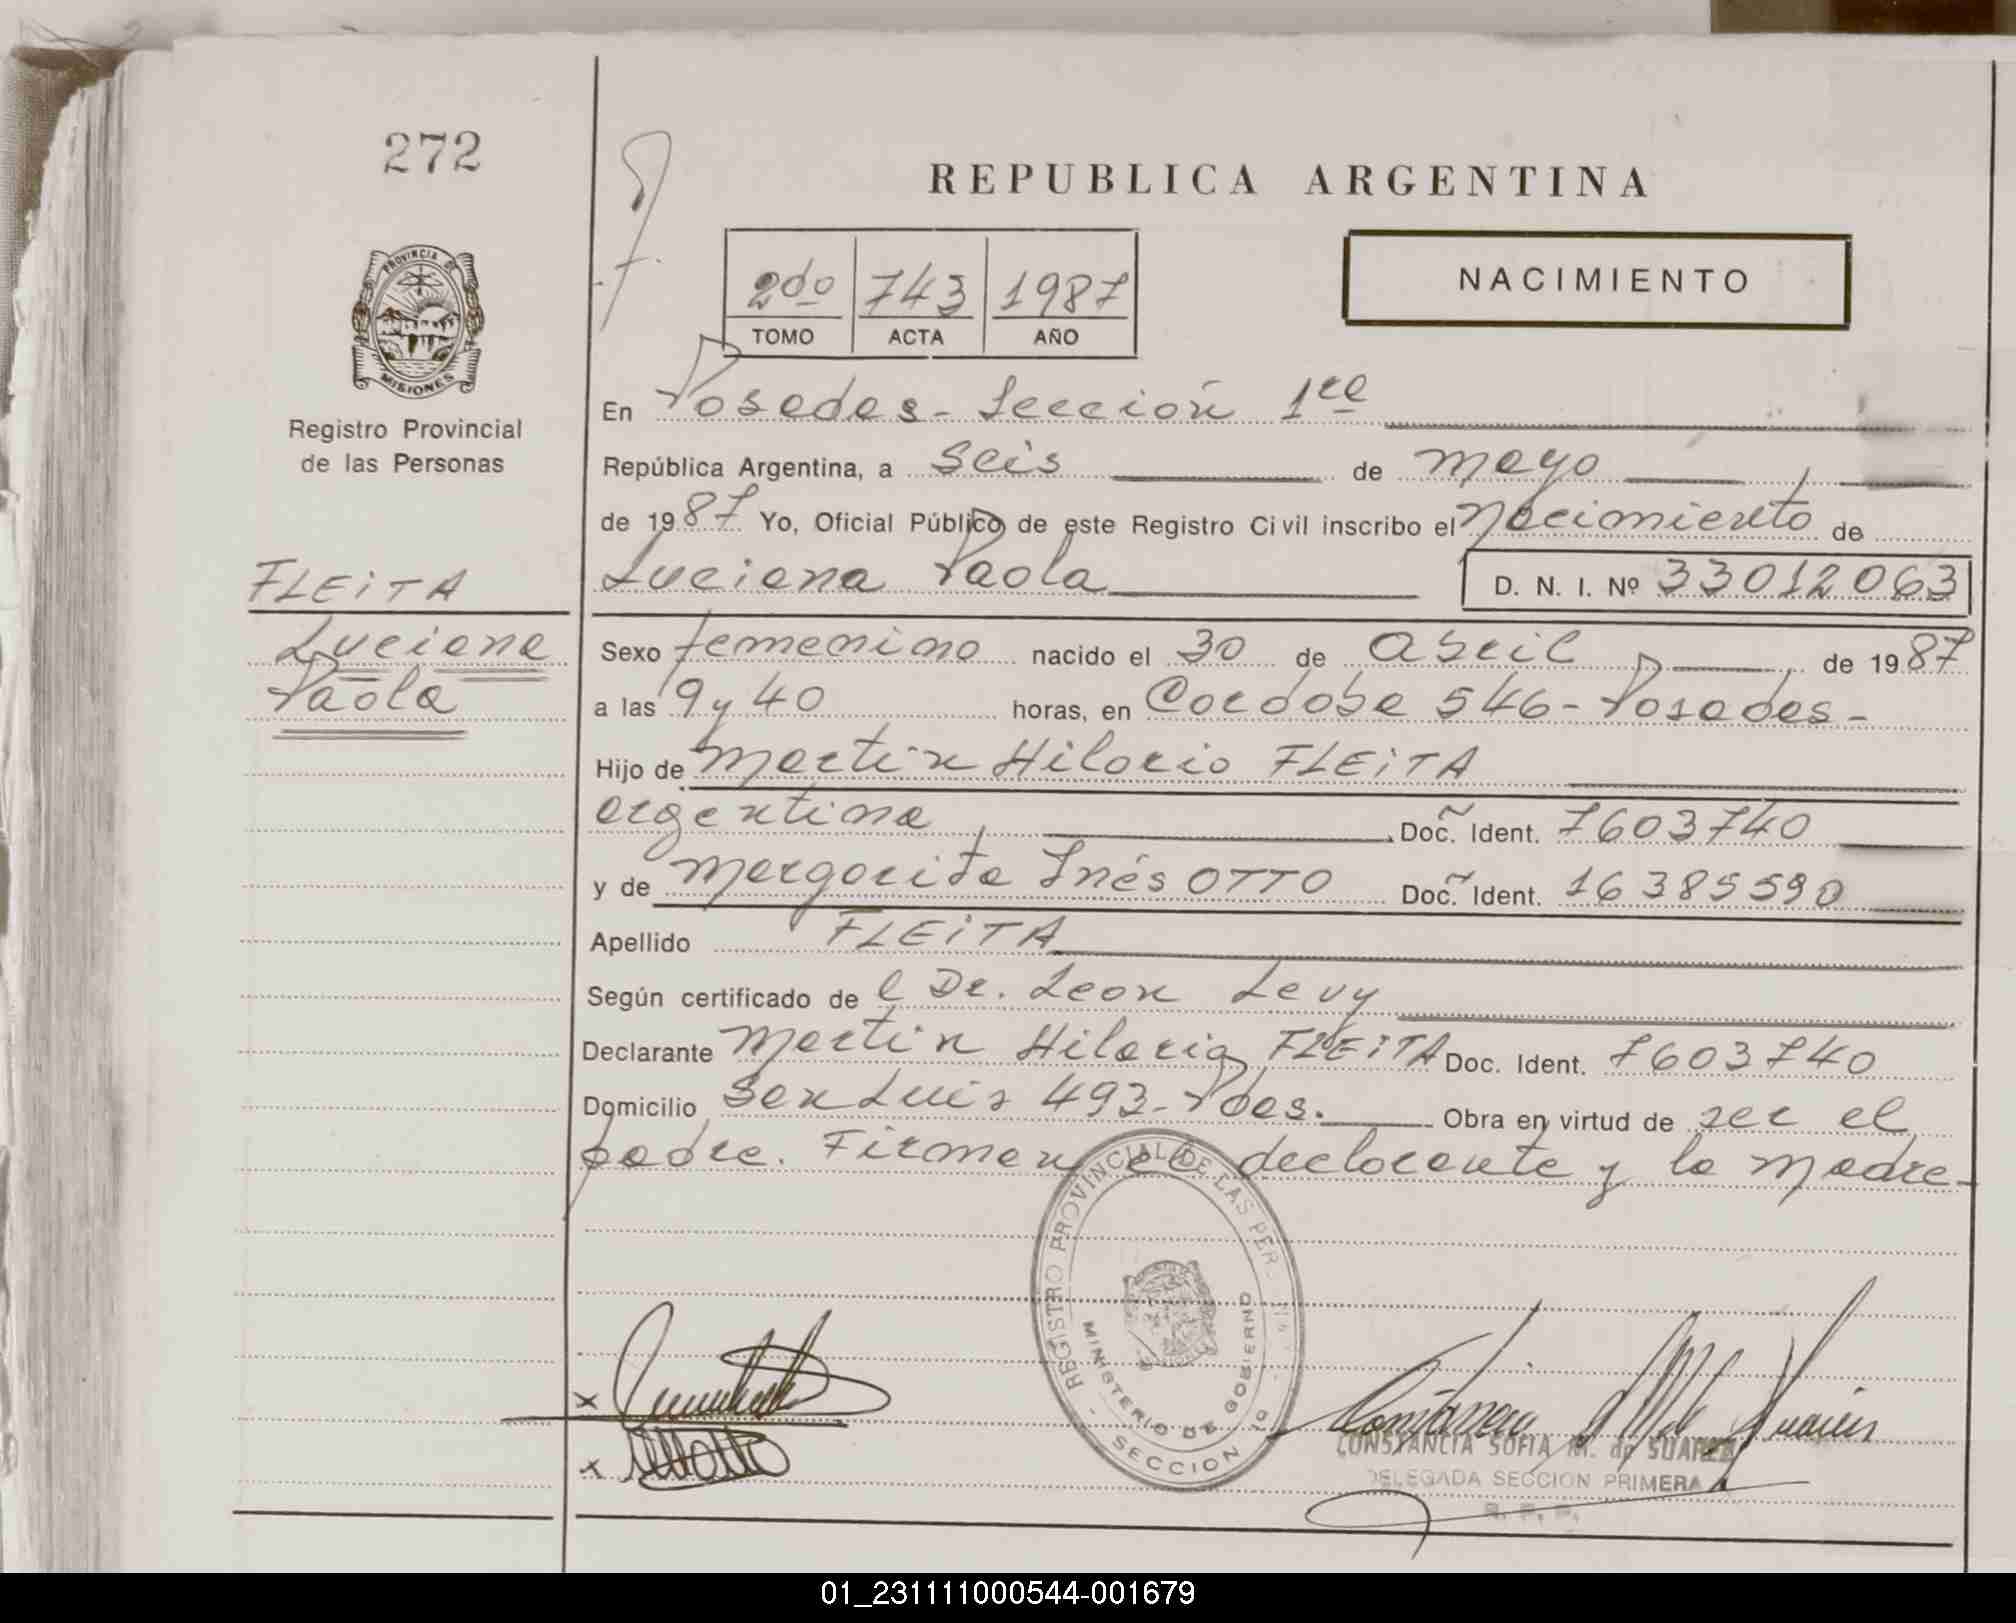 272
REPUBLICA ARGENTINA
2do 743 1987
TOMO ACTA AÑO
NACIMIENTO
PROVINCIA DE
MISIONES
Registro Provincial
de las Personas
FLEITA
Luciana
Paola
En Posadas - Sección 1ra
República Argentina, a seis de mayo
de 1987 Yo, Oficial Público de este Registro Civil inscribo el Nacimiento de
Luciana Paola D. N. I. Nº 33012063
Sexo femenino nacido el 30 de abril de 1987
a las 9 y 40 horas, en Cordoba 546 - Posadas -
Hijo de Martin Hilario FLEITA
argentina Doc. Ident. 7603740
y de Margarita Inés OTTO Doc. Ident. 16385590
Apellido FLEITA
Según certificado de l Dr. Leon Levy
Declarante Martin Hilario FLEITA Doc. Ident. 7603740
Domicilio San Luis 493 - Pdas. Obra en virtud de ser el
padre. Firman el declarante y la madre -
REGISTRO PROVINCIAL DE LAS PER
MINISTERIO DE GOBIERNO
SECCION
CONSTANCIA SOFIA M. de SUAREZ
DELEGADA SECCION PRIMERA
R. P. P.
01_231111000544-001679